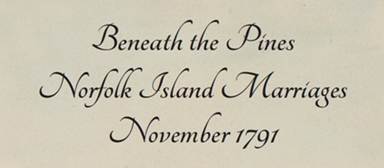 Beneath the Pines
Norfolk Island Marriages
November 1791